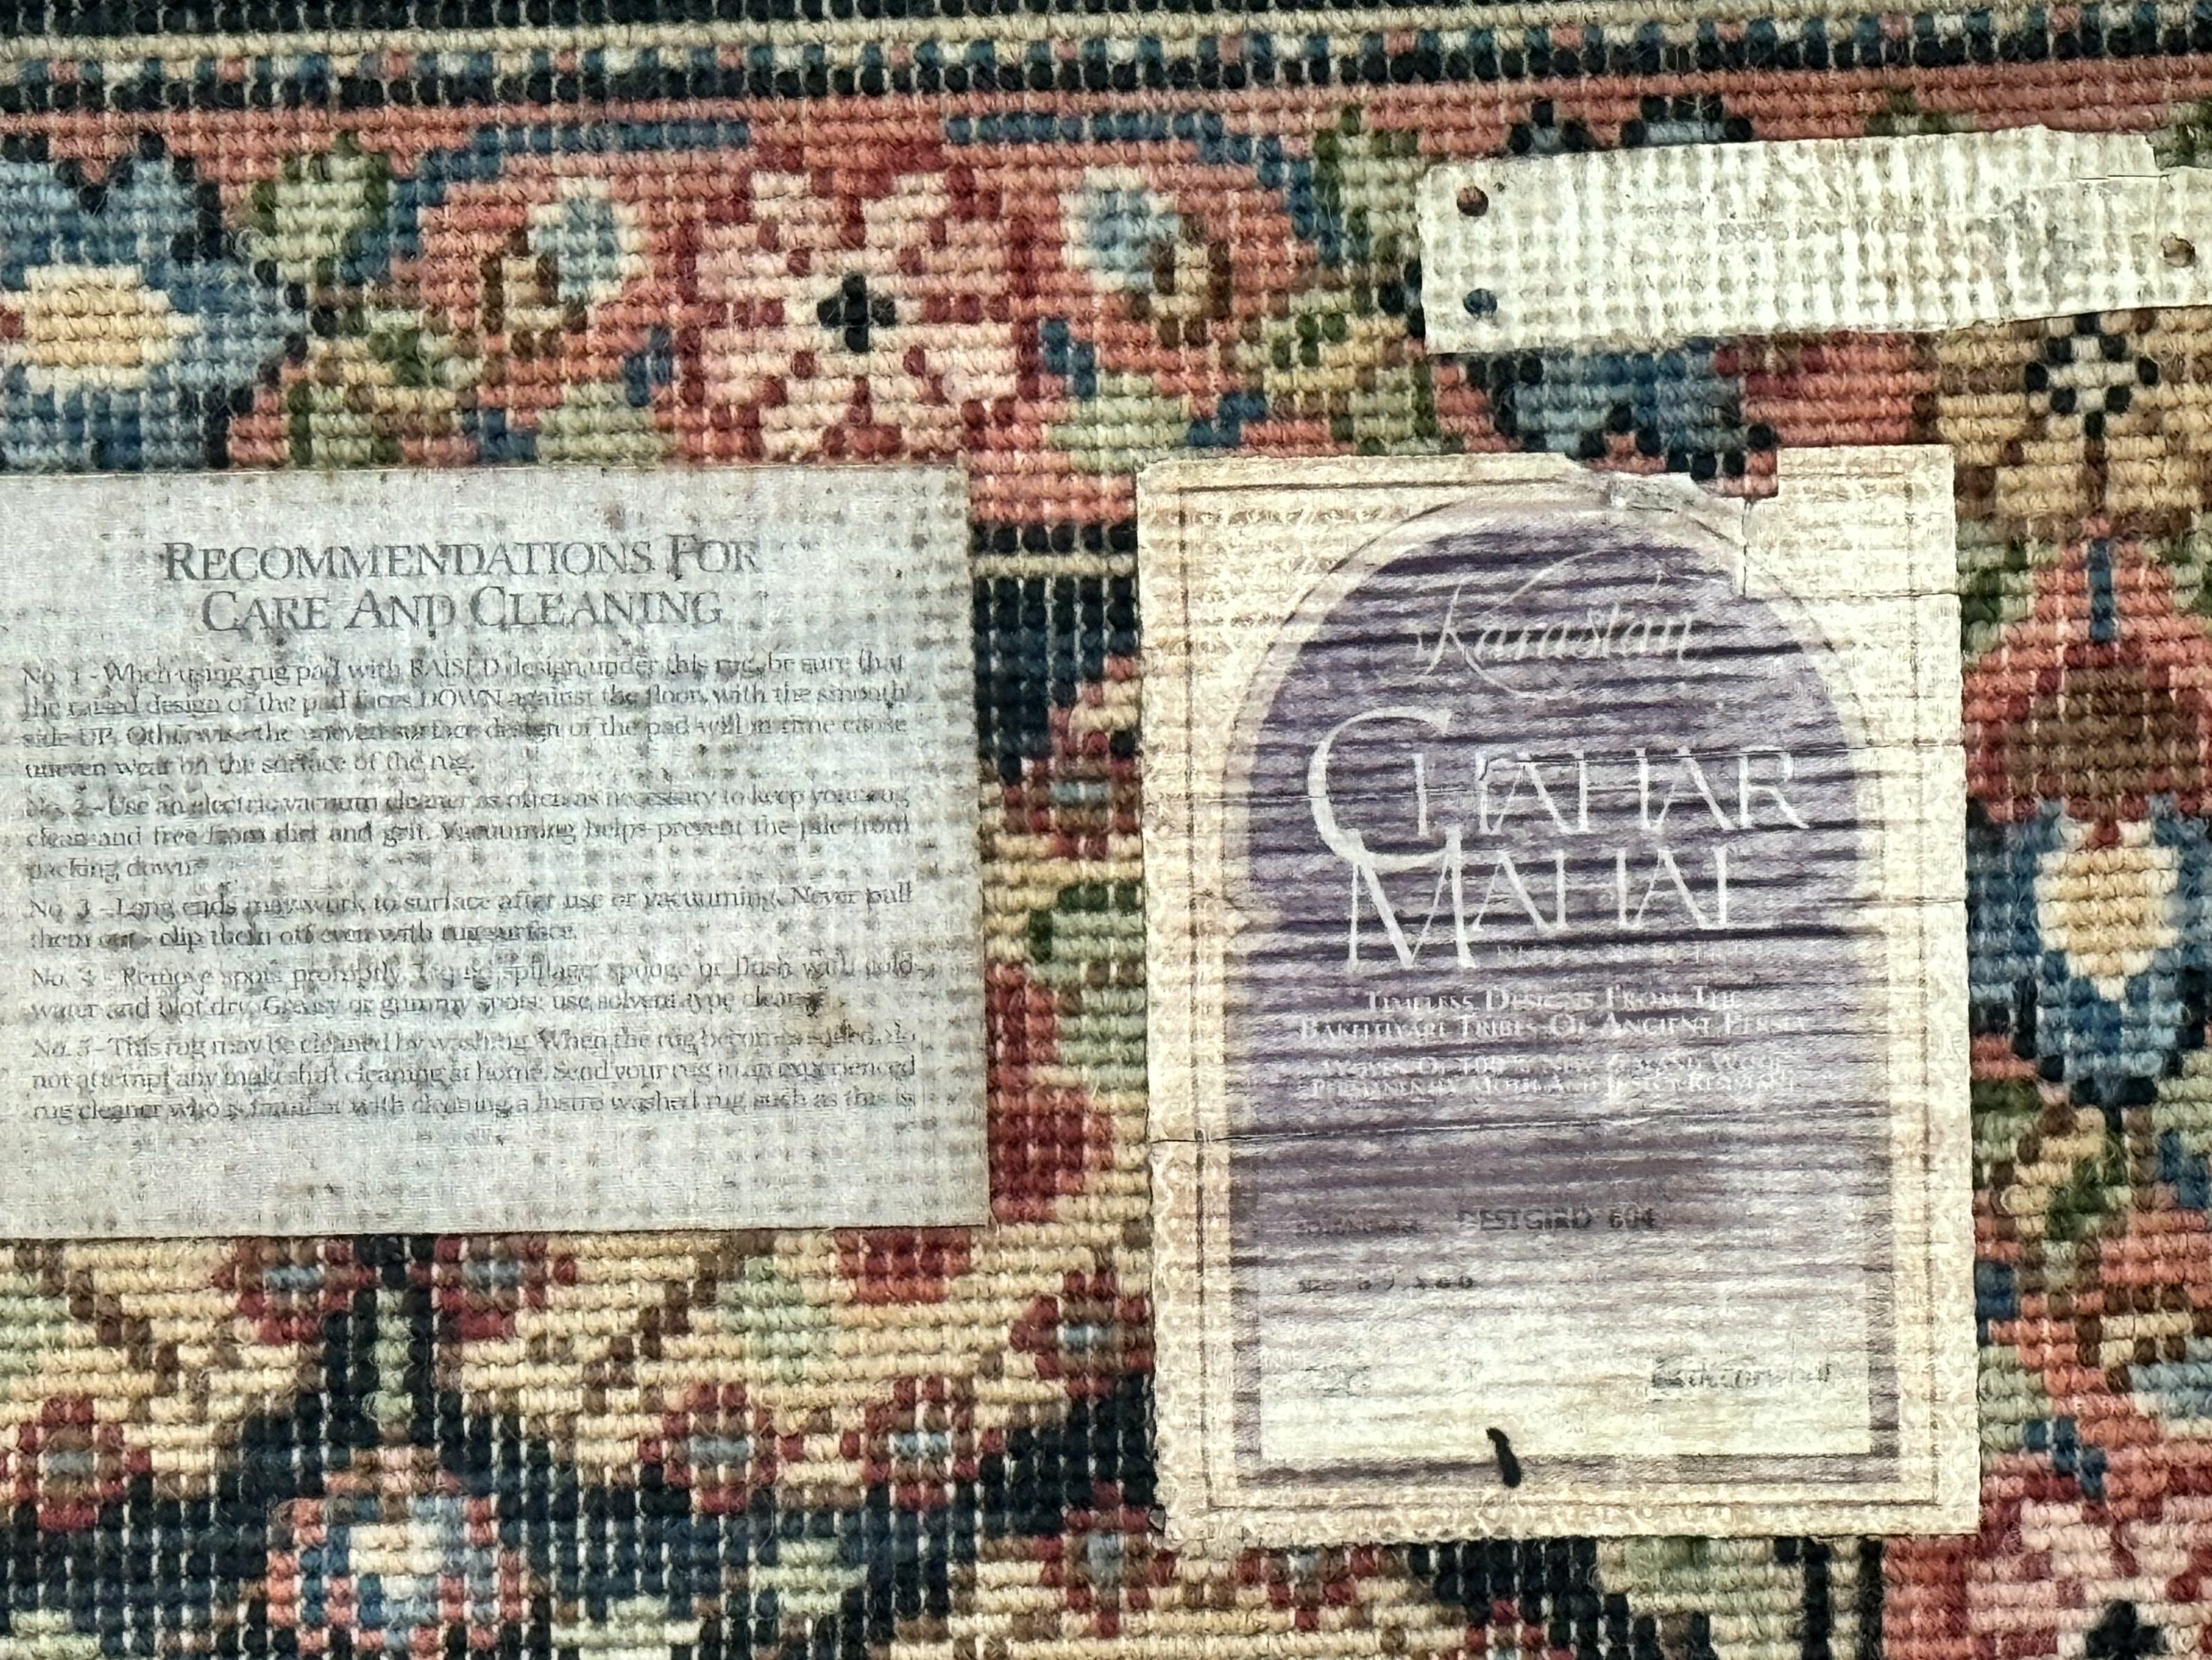 RECOMMENDATIONS FOR
CARE AND CLEANING
No. 1 - When using rug pad with RAISED design under this rug, be sure that
the raised design of the pad faces DOWN against the floor, with the smooth
side UP. Otherwise the uneven surface design of the pad will in time cause
uneven wear on the surface of the rug.
No. 2 - Use an electric vacuum cleaner as often as necessary to keep your rug
clean and free from dirt and grit. Vacuuming helps prevent the pile from
packing down.
No. 3 - Long ends may work to surface after use or vacuuming. Never pull
them out - clip them off even with rug surface.
No. 4 - Remove spots promptly. spillage: sponge or flush with cold
water and blot dry. Greasy or gummy spots: use solvent type cleaner.
No. 5 - This rug may be cleaned by washing. When the rug becomes soiled, do
not attempt any makeshift cleaning at home. Send your rug to an experienced
rug cleaner who is familiar with cleaning a lustre washed rug such as this is.
Karastan
CHAHAR
MAHAL
TIMELESS DESIGNS FROM THE
BAKHTIYARI TRIBES OF ANCIENT PERSIA
WOVEN OF 100% NEW ZEALAND WOOL
PERMANENTLY MOTH AND INSECT RESISTANT
SIZE